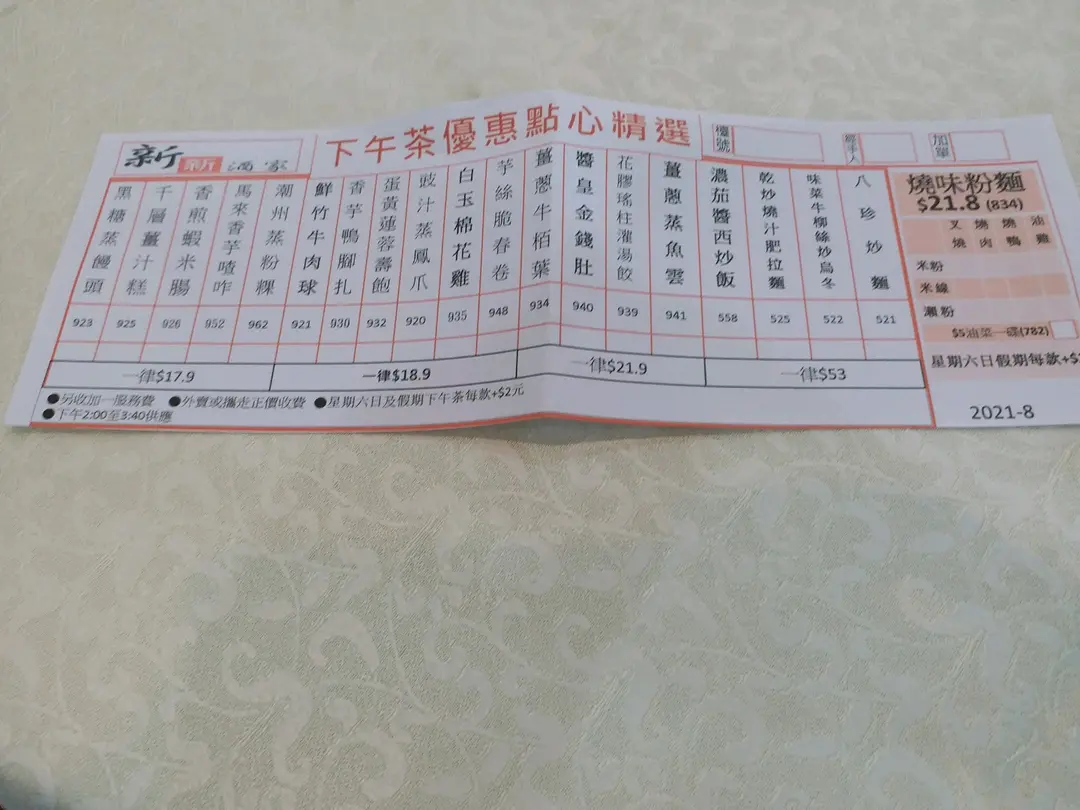 新新酒家
下午茶優惠點心精選
檯號
經手人
加單
黑糖蒸饅頭
千層薑汁糕
香煎蝦米腸
馬來香芋喳咋
潮州蒸粉粿
鮮竹牛肉球
香芋鴨腳扎
蛋黃蓮蓉壽飽
豉汁蒸鳳爪
白玉棉花雞
芋絲脆春卷
薑蔥牛栢葉
醬皇金錢肚
花膠瑤柱灌湯餃
薑蔥蒸魚雲
濃茄醬西炒飯
乾炒燒汁肥拉麵
味菜牛柳絲炒烏冬
八珍炒麵
923 925 926 952 962 921 930 932 920 935 948 934 940 939 941 558 525 522 521
一律$17.9
一律$18.9
一律$21.9
一律$53
●另收加一服務費 ●外賣或攜走正價收費 ●星期六日及假期下午茶每款+$2元
●下午2:00至3:40供應
燒味粉麵
$21.8 (834)
叉燒 燒肉 燒鴨 油雞
米粉
米線
瀨粉
$5油菜一碟(782)
星期六日假期每款+$
2021-8